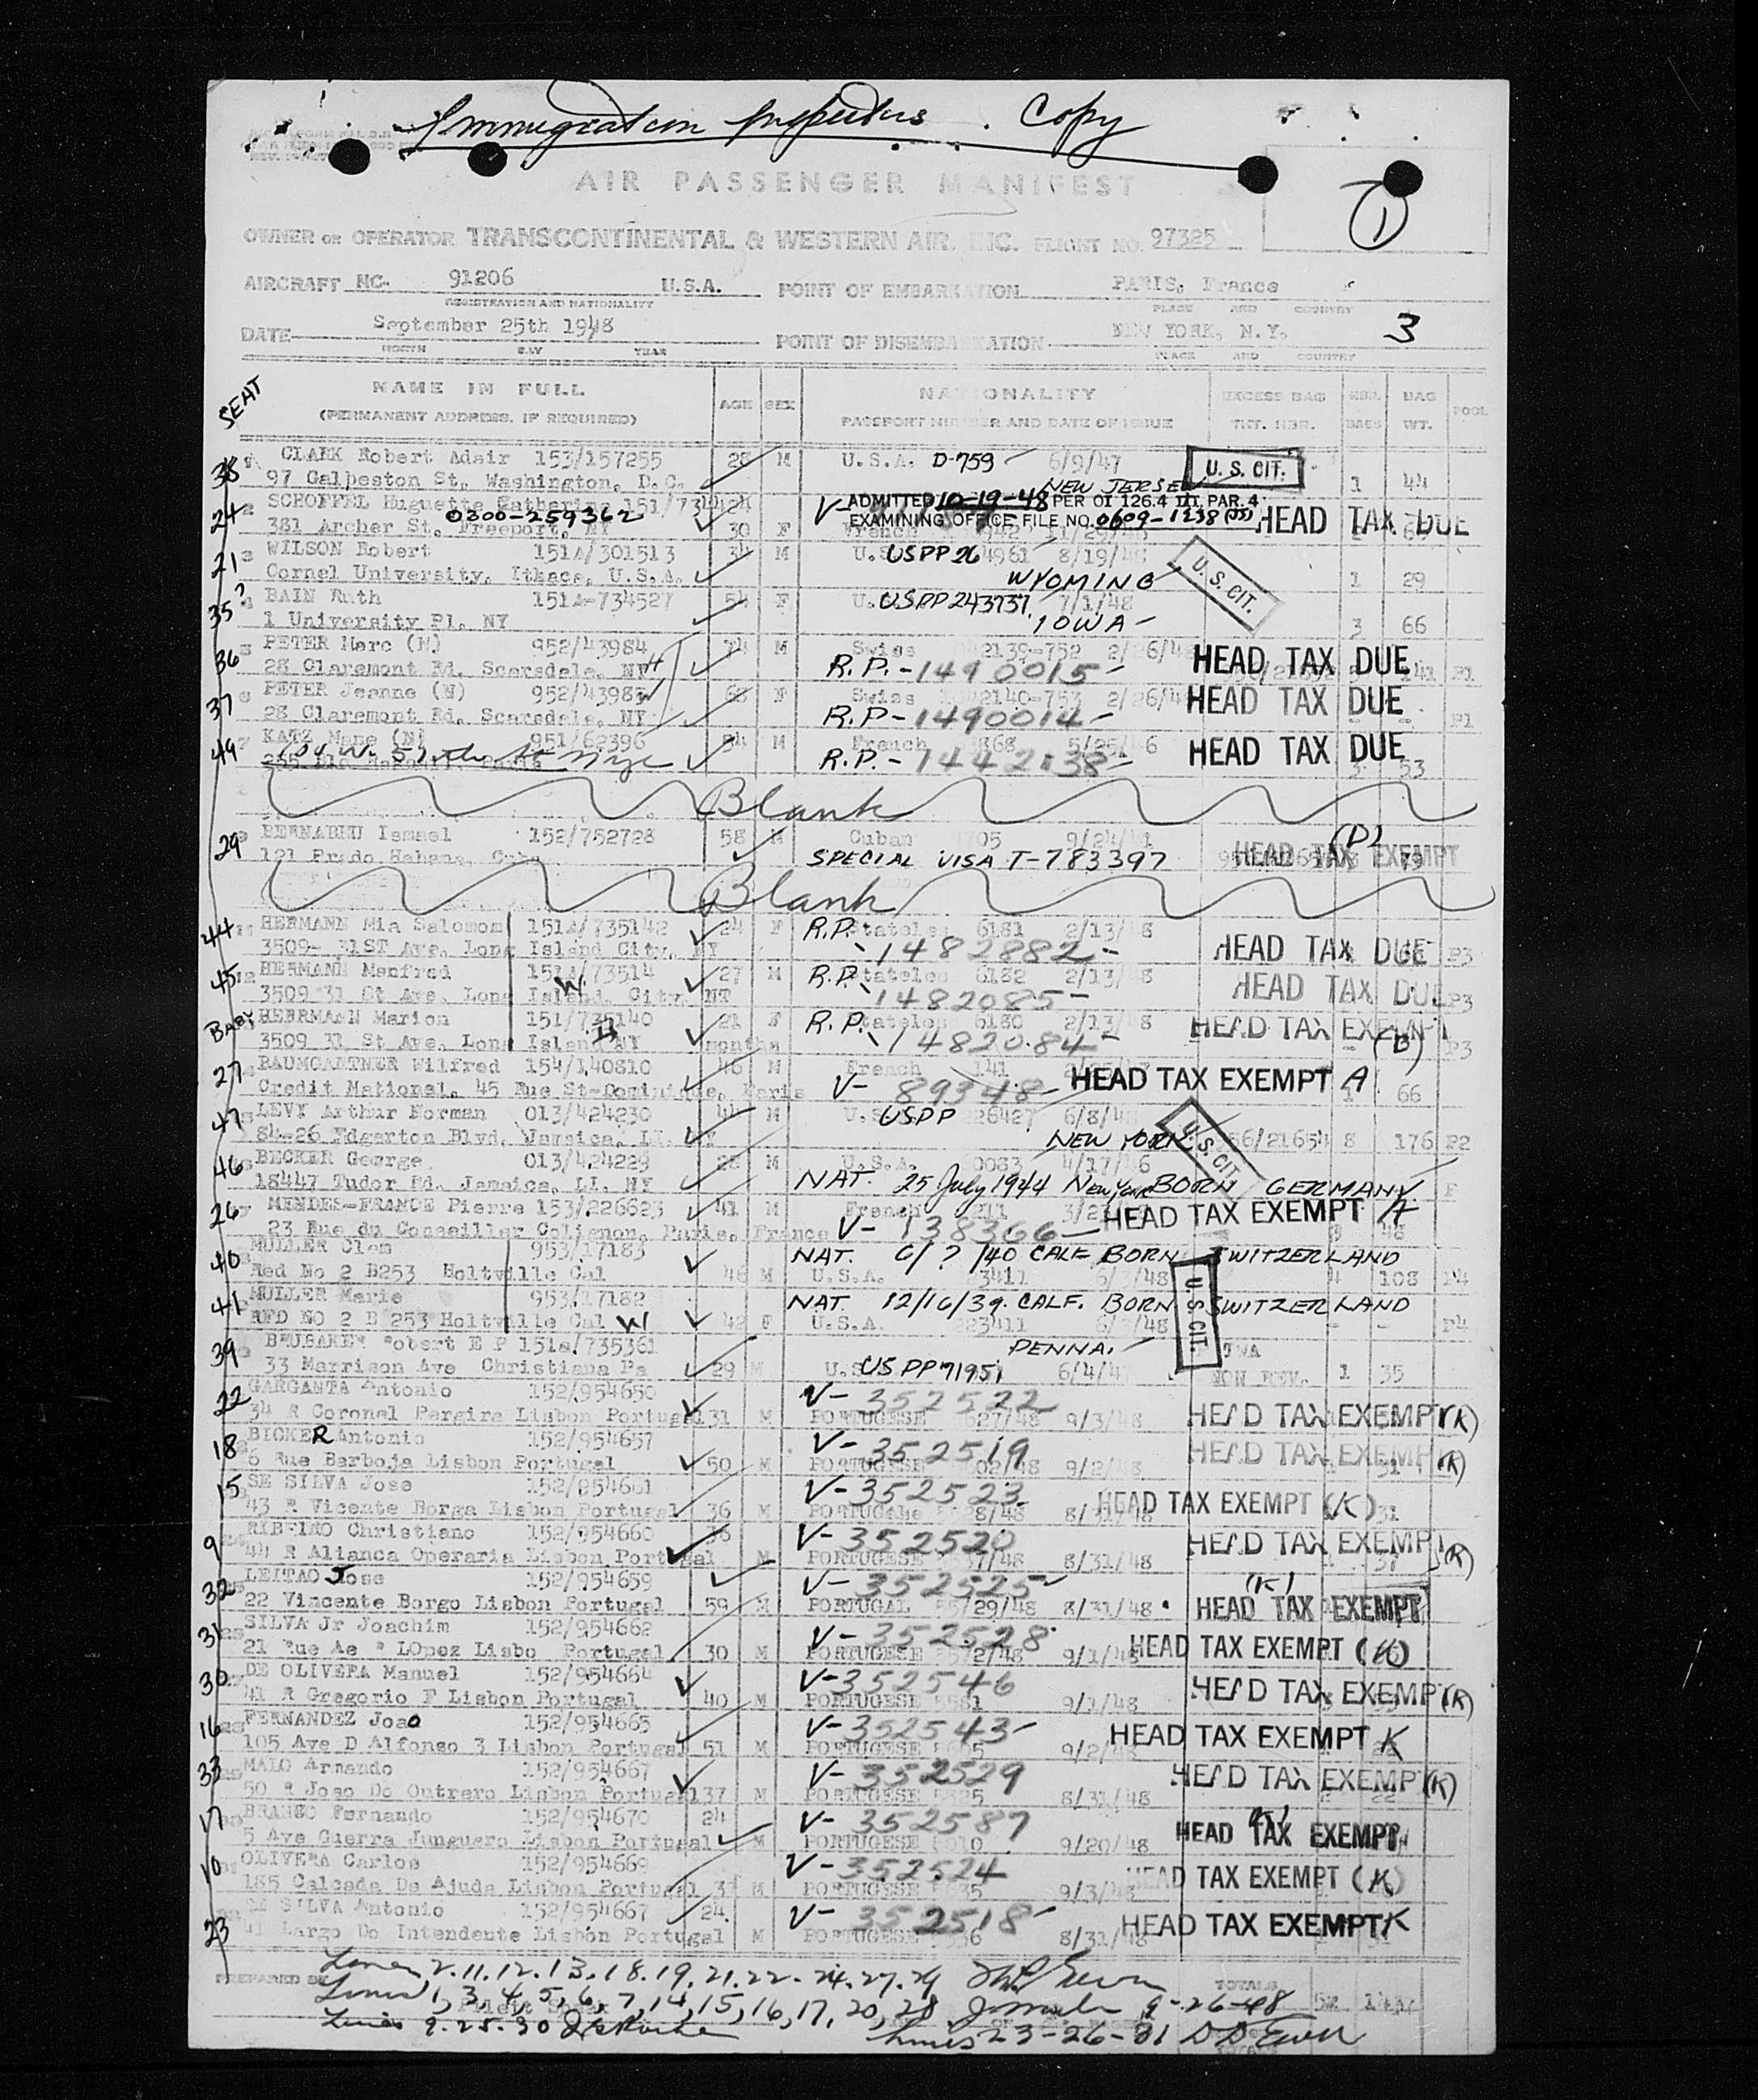 Immigration Inspectors Copy
AIR PASSENGER MANIFEST
1
OWNER OR OPERATOR TRANSCONTINENTAL & WESTERN AIR, INC. FLIGHT NO. 97325
AIRCRAFT NC. 91206 U.S.A. POINT OF EMBARKATION PARIS, France
REGISTRATION AND NATIONALITY PLACE AND COUNTRY
DATE September 25th 1948 POINT OF DISEMBARKATION NEW YORK, N.Y. 3
MONTH DAY YEAR PLACE AND COUNTRY
SEAT NAME IN FULL AGE SEX NATIONALITY EXCESS BAG NBR. BAG POOL
(PERMANENT ADDRESS, IF REQUIRED) PASSPORT NUMBER AND DATE OF ISSUE TKT. NBR. BAGS WT.
38 CLARK Robert Adair 153/157255 28 M U.S.A. D-759 6/9/47 U. S. CIT.
97 Galpeston St, Washington, D.C. NEW JERSEY 1 44
24 SCHOFFEL Huguette ADMITTED 10-19-48 PER OI 126.4 PAR. 4
0300-259362 EXAMINING OFFICE FILE NO. HEAD TAX DUE
381 Archer St, Freeport, NY 30 F French
21 WILSON Robert 151A/301513 M USPP 26 4961 8/19/48
Cornel University, Ithaca, U.S.A. WYOMING U. S. CIT. 1 29
35 BAIN Ruth 151A-734527 54 F USPP 243737 7/1/48
1 University Pl, NY IOWA 3 66
36 PETER Marc (N) 952/43984 M Swiss 2139-752 2/26/4 HEAD TAX DUE
28 Claremont Rd, Scarsdale, NY H R.P.-1490015 P1
37 PETER Jeanne (N) 952/43985 W F Swiss 2140-753 2/26/4 HEAD TAX DUE
28 Claremont Rd, Scarsdale, NY R.P-1490014 P1
49 KATZ (N) 951/62396 M French 868 HEAD TAX DUE
R.P.-1442138 53
Blank
29 BERNABEU Ismael 152/752728 58 M Cuban 705 (D)
121 Prado, Habana, Cuba SPECIAL VISA T-783397 HEAD TAX EXEMPT 79
Blank
44 HERMANN Mia Salomon 151A/735142 24 F R.P. Stateles 6181 2/13/48
3509- 31ST Ave, Long Island City, NY 1482882 HEAD TAX DUE P3
45 HERMANN Manfred 151A/73514 27 M R.P. Stateles 6182 2/13/48
3509 31 St Ave, Long Island, City, NY W 1482085 HEAD TAX DUE P3
BABY HERRMANN Marion 151/735140 21 F R.P. Stateles 6180 2/13/48 HEAD TAX EXEMPT
3509 31 St Ave, Long Island NY months 1482084 (B) P3
27 BAUMGARTNER Wilfred 154/140810 46 M French 141
Credit National, 45 Rue St-Dominique, Paris V-89348 HEAD TAX EXEMPT A 1 66
47 LEVY Arthur Norman 013/424230 M USPP 26427 6/8/4
84-26 Edgarton Blvd, Jamaica, LI, NY NEW YORK U. S. CIT. 8 176 P2
46 BECKER George 013/424229 28 M U.S.A. 4/17/46
18447 Tudor Rd, Jamaica, LI, NY NAT. 25 July 1944 New York BORN GERMANY
26 MENDES-FRANCE Pierre 153/226623 41 M French
23 Rue du Conseiller Colignon, Paris, France V-138366 HEAD TAX EXEMPT A
40 MULLER Clem 953/17183 NAT. 6/?/40 CALF. BORN SWITZERLAND
Red No 2 B253 Holtville Cal 46 M U.S.A. 23411 6/ /48 4 108 P4
41 MULLER Marie 953/17182 NAT 12/16/39. CALF. BORN SWITZERLAND
RFD NO 2 B 253 Holtville Cal W 42 F U.S.A. 223411 6/ /48 U. S. CIT. P4
39 BRUBAKER Robert E P 151a/735361 PENNA. TWA
33 Marrison Ave Christiana Pa 29 M US PP 71951 6/4/47 NON REV. 1 35
22 GARGANTA Antonio 152/954650 V-352522
34 R Coronel Pergira Lisbon Portugal 31 M PORTUGESE 627/48 9/3/48 HEAD TAX EXEMPT (K)
18 BICKER Antonio 152/954657 V-352519
6 Rue Barboja Lisbon Portugal 50 M PORTUGESE 9/2/48 HEAD TAX EXEMPT (K)
15 SE SILVA Jose 152/954661 V-352523
43 R Vicente Borga Lisbon Portugal 36 M 8/31/48 HEAD TAX EXEMPT (K) 31
9 RIBEIRO Christiano 152/954660 36 V-352520
44 R Alianca Operaria Lisbon Portugal M PORTUGESE 8/31/48 HEAD TAX EXEMPT (K)
32 LEITAO Jose 152/954659 V-352525 (K)
22 Vincente Borgo Lisbon Portugal 59 M PORTUGAL 8/31/48 HEAD TAX EXEMPT
31 SILVA Jr Joachim 152/954662 V-352528
21 Rue Ae R LOpez Lisbo Portugal 30 M PORTUGESE 9/1/48 HEAD TAX EXEMPT (K)
30 DE OLIVERA Manuel 152/954664 V-352546
41 R Gregorio F Lisbon Portugal 40 M PORTUGESE 9/1/48 HEAD TAX EXEMPT (K)
16 FERNANDEZ Joao 152/954665 V-352543
105 Ave D Alfonso 3 Lisbon Portugal 51 M PORTUGESE 9/2/48 HEAD TAX EXEMPT K
33 MALO Armando 152/954667 V-352529
50 R Joso Do Outrero Lisbon Portugal 37 M PORTUGESE 8/31/48 HEAD TAX EXEMPT (K)
17 BRANCO Fernando 152/954670 24 V-352587
5 Ave Guerra Junguero Lisbon Portugal M PORTUGESE 9/20/48 HEAD TAX EXEMPT
10 OLIVERA Carlos 152/954669 V-352524
185 Calcada Da Ajuda Lisbon Portugal M PORTUGESE 9/3/48 HEAD TAX EXEMPT (K)
23 DA SILVA Antonio 152/954667 24 V-352518
41 Largo Do Intendente Lisbon Portugal M PORTUGESE 8/31/48 HEAD TAX EXEMPT K
Lines 2.11.12.13.18.19.21.22.24.27.29
PREPARED BY TOTALS
Lines 1, 3, 4, 5, 6, 7, 14, 15, 16, 17, 20, 28 9-26-48 52
Lines 9.25.30 Lines 23-26-31